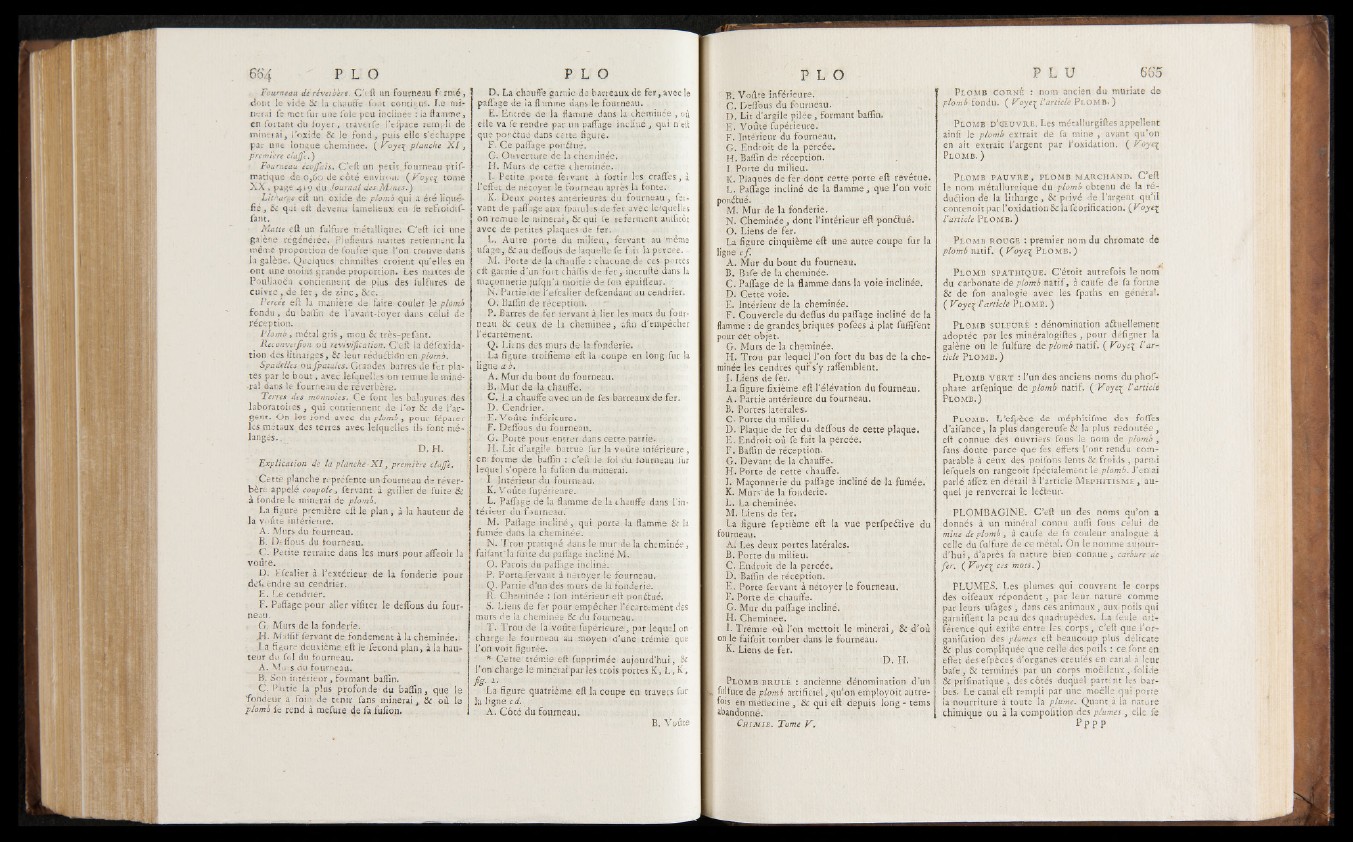 664 P L O
Fourneau de réverbère. C'est un fourneau fermé,
dont le vide & la chauffe sont contigus. Le mi-
nerai se met sur une sole peu inclinée : la flamme,
en sortant du foyer, traverse l'espace rempli de
minerai, l'oxide & le fond, puis elle s'échappe
par une longue cheminée. ( Voyez planche XI,
première classe. )
Fourneau écossois. C'est un petit fourneau pris-
matique de 0,60 de côté environ. ( Voyez tome
XX, page 419 du Journal des Mines. )
Litharge est un oxide de plomb qui a été liqué-
fié, & qui est devenu lamelleux en se refroidis-
sant.
Matte est un sulfure métallique. C'est ici une
galène régénérée. Plusieurs mattes retiennent la
même proportion de soufre que l'on trouve dans
la galène. Quelques chimistes croient qu'elles en
ont une moins grande proportion. Les mattes de
Poullaoen contiennent de plus des sulfures de
cuivre, de fer, de zinc, &c.
Percée est la manière de faire couler le plomb
fondu, du bassin de l'avant-foyer dans celui de
réception.
Plomb, métal gris, mou & très-pesant.
Reconversion ou revivification. C'est la désoxida-
tion des litharges, & leur réduction en plomb.
Spadelles ou spatules. Grandes barres de fer pla-
tes par le bout, avec lesquelles on remue le miné-
ral dans le fourneau de réverbère.
Terres des monnoies. Ce sont les balayures des
laboratoires, qui contiennent de l'or & de l'ar-
gent. On les fond avec du plomb, pour séparer
les métaux des terres avec lesquelles ils sont mé-
langés.
D. H.
Explication de la planche XI, première classe.
Cette planche représente un fourneau de réver-
bère appelé coupole, servant à griller de suite &
à fondre le minerai de plomb.
La figure première est le plan, à la hauteur de
la voûte intérieure.
A. Murs du fourneau.
B. Dessous du fourneau.
C. Petite retraite dans les murs pour asseoir la
voûte.
D. Escalier à l'extérieur de la fonderie pour
descendre au cendrier.
E. Le cendrier.
F. Passage pour aller visiter le dessous du four-
neau.
G. Murs de la fonderie.
H. Massif servant de fondement à la cheminée.
La figure deuxième est le second plan, à la hau-
teur du sol du fourneau.
A. Murs du fourneau.
B. Son intérieur, formant bassin.
C. Partie la plus profonde du bassin, que le
fondeur a soin de tenir sans minerai, & où le
plomb se rend à mesure de sa fusion.
P L O
D. La chauffe garnie de barreaux de fer, avec le
passage de la flamme dans le fourneau.
E. Entrée de la flamme dans la cheminée, où
elle va se rendre par un passage incliné, qui n'est
que ponctué dans cette figure.
F. Ce passage ponctué.
G. Ouverture de la cheminée.
H. Murs de cette cheminée.
I. Petite porte servant à sortir les crasses, à
l'effet de nétoyer le fourneau après la fonte.
K. Deux portes antérieures du fourneau, ser-
vant de passage aux spatules de fer avec lesquelles
on remue le minerai, & qui se referment aussitôt
avec de petites plaques de fer.
L. Autre porte du milieu, servant au même
usage, & au dessous de laquelle se fait la percée.
M. Porte de la chauffe : chacune de ces portes
est garnie d'un fort châssis de fer, incrusté dans la
maçonnerie jusqu'à moitié de son épaisseur.
N. Partie de l'escalier descendant au cendrier.
O. Bassin de réception.
P. Barres de fer servant à lier les murs du four-
neau & ceux de la cheminée, afin d'empêcher
l'écartement.
Q. Liens des murs de la fonderie.
La figure troisième est la coupe en long sur la
ligne a b.
A. Mur du bout du fourneau.
B. Mur de la chauffe.
C. La chauffe avec un de ses barreaux de fer.
D. Cendrier.
E. Voûte inférieure.
F. Dessous du fourneau.
G. Porte pour entrer dans cette partie.
H. Lit d'argile battue sur la voûte inférieure,
en forme de bassin : c'est le sol du fourneau sur
lequel s'opère la fusion du minerai.
I. Intérieur du fourneau.
K. Voûte supérieure.
L. Passage de la flamme de la chauffe dans l'in-
térieur du fourneau.
M. Passage incliné, qui porte la flamme & la
fumée dans la cheminée.
N. Trou pratiqué dans le mur de la cheminée,
faisant la suite du passage incliné M.
O. Parois du passage incliné.
P. Porte servant à nétoyer le fourneau.
Q. Partie d'un des murs de la fonderie.
R. Cheminée : son intérieur est ponctué.
S. Liens de fer pour empêcher l'écartement des
murs de la cheminée & du fourneau.
T. Trou de la voûte supérieure, par lequel on
charge le fourneau au moyen d'une trémie que
l'on voit figurée.
* Cette trémie est supprimée aujourd'hui, &
l'on charge le minerai par les trois portes K, L, K,
fig. 2.
La figure quatrième est la coupe en travers sur
la ligne c d.
A. Côté du fourneau.
B. Voûte
P L O
B. Voûte inférieure.
C. Dessous du fourneau.
D. Lit d'argile pilée, formant bassin.
E. Voûte supérieure.
F. Intérieur du fourneau.
G. Endroit de la percée.
H. Bassin de réception.
I Porte du milieu.
K. Plaques de fer dont cette porte est revêtue.
L. Passage incliné de la flamme, que l'on voit
ponctué.
M. Mur de la fonderie.
N. Cheminée, dont l'intérieur est ponctué.
O. Liens de fer.
La figure cinquième est une autre coupe sur la
ligne e f.
A. Mur du bout du fourneau.
B. Base de la cheminée.
C. Passage de la flamme dans la voie inclinée.
D. Cette voie.
E. Intérieur de la cheminée.
F. Couvercle du dessus du passage incliné de la
flamme : de grandes briques posées à plat suffisent
pour cet objet.
G. Murs de la cheminée.
H. Trou par lequel l'on sort du bas de la che-
minée les cendres qui s'y rassemblent.
I. Liens de fer.
La figure sixième est l'élévation du fourneau.
A. Partie antérieure du fourneau.
B. Portes latérales.
C. Porte du milieu.
D. Plaque de fer du dessous de cette plaque.
E. Endroit où se fait la percée.
F. Bassin de réception.
G. Devant de la chauffe.
H. Porte de cette chauffe.
I. Maçonnerie du passage incliné de la fumée.
K. Murs de la fonderie.
L. La cheminée.
M. Liens de fer.
La figure septième est la vue perspective du
fourneau.
A. Les deux portes latérales.
B. Porte du milieu.
C. Endroit de la percée.
D. Bassin de réception.
E. Porte servant à nétoyer le fourneau.
F. Porte de chauffe.
G. Mur du passage incliné.
H. Cheminée.
I. Trémie où l'on mettoit le minerai, & d'où
on le faisoit tomber dans le fourneau.
K. Liens de fer.
D. H.
PLOMB BRULÉ : ancienne dénomination d'un
sulfure de plomb artificiel, qu'on employoit autre-
fois en médecine, & qui est depuis long-tems
abandonné.
CHIMIE. Tome V.
P L U 665
PLOMB CORNÉ : nom ancien du muriate de
plomb fondu. ( Voyez l'article PLOMB. )
PLOMB D'ŒUVRE. Les métallurgistes appellent
ainsi le plomb extrait de sa mine, avant qu'on
en ait extrait l'argent par l'oxidation. ( Voyez
PLOMB. )
PLOMB PAUVRE, PLOMB MARCHAND. C'est
le nom métallurgique du plomb obtenu de la ré-
duction de la litharge, & privé de l'argent qu'il
contenoit par l'oxidation & la scorification. ( Voyez
l'article PLOMB. )
PLOMB ROUGE : premier nom du chromate de
plomb natif. ( Voyez PLOMB. )
PLOMB SPATHIQUE. C'étoit autrefois le nom
du carbonate de plomb natif, à cause de sa forme
& de son analogie avec les spaths en général.
( Voyez l'article PLOMB. )
PLOMB SULFURÉ : dénomination actuellement
adoptée par les minéralogistes, pour désigner la
galène ou le sulfure de plomb natif. ( Voyez l'ar-
ticle PLOMB. )
PLOMB VERT : l'un des anciens noms du phos-
phate arsénique de plomb natif. ( Voyez l'article
PLOMB. )
PLOMB. L'espèce de méphitisme des fosses
d'aisance, la plus dangereuse & la plus redoutée,
est connue des ouvriers sous le nom de plomb,
sans doute parce que ses effets l'ont rendu com-
parable à ceux des poisons lents & froids, parmi
lesquels on rangeoit spécialement le plomb. J'en ai
parlé assez en détail à l'article MEPHITISME, au-
quel je renverrai le lecteur.
PLOMBAGINE. C'est un des noms qu'on a
donnés à un minéral connu aussi sous celui de
mine de plomb, à cause de sa couleur analogue à
celle du sulfure de ce métal. On le nomme aujour-
d'hui, d'après sa nature bien connue, carbure de
fer. ( Voyez ces mots. )
PLUMES. Les plumes qui couvrent le corps
des oiseaux répondent, par leur nature comme
par leurs usages, dans ces animaux, aux poils qui
garnissent la peau des quadrupèdes. La seule dif-
férence qui existe entre les corps, c'est que l'or-
ganisation des plumes est beaucoup plus délicate
& plus compliquée que celle des poils : ce sont en
effet des espèces d'organes creusés en canal à leur
base, & terminés par un corps moëlleux, solide
& prismatique, des côtés duquel partent les bar-
bes. Le canal est rempli par une moëlle qui porte
la nourriture à toute la plume. Quant à la nature
chimique ou à la composition des plumes, elle se
P p p p